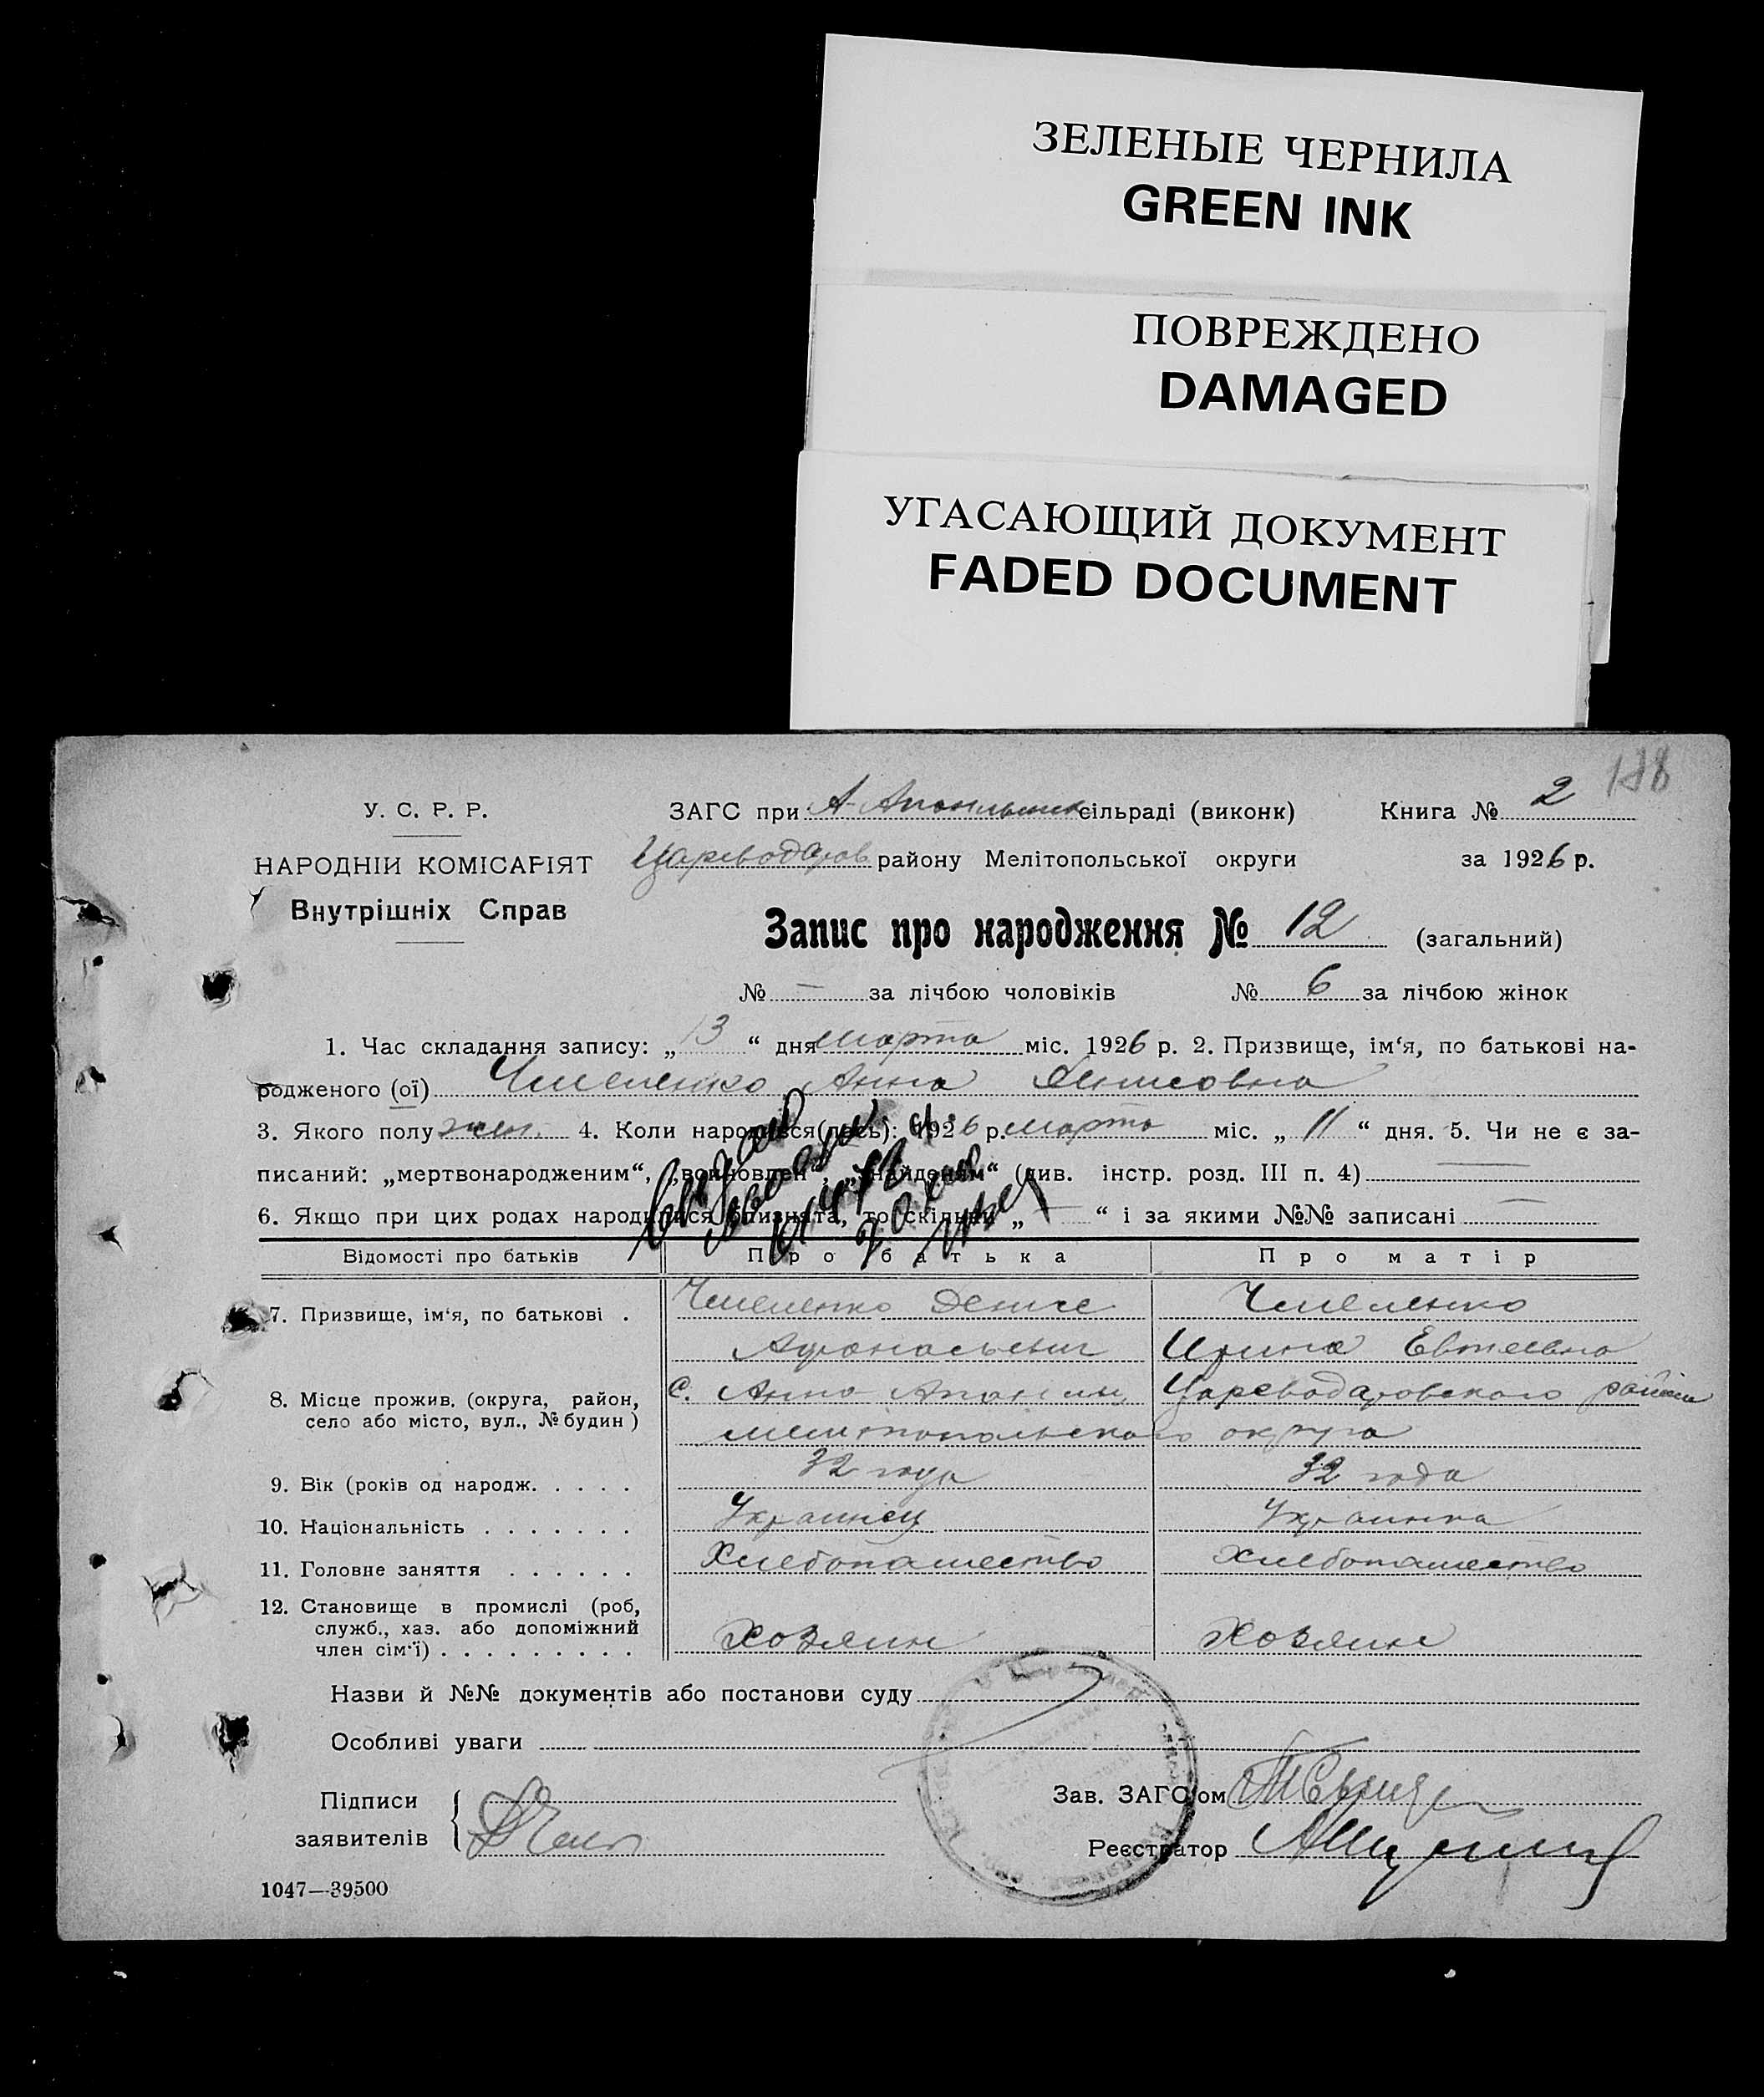 ЗЕЛЕНЫЕ ЧЕРНИЛА
GREEN INK
ПОВРЕЖДЕНО
DAMAGED
УГАСАЮЩИЙ ДОКУМЕНТ
FADED DOCUMENT
У. С. Р. Р.
НАРОДНІЙ КОМІСАРІЯТ
Внутрішніх Справ
ЗАГС при сільраді (виконк) Книга № 2
Цареводаров району Мелітопольської округи за 1926 р.
Запис про народження № 12 (загальний)
№ — за лічбою чоловіків № 6 за лічбою жінок
1. Час складання запису: „13“ дня марта міс. 1926 р. 2. Призвище, ім'я, по батькові на-
родженого (ої) Анна Денисовна
3. Якого полу жен. 4. Коли народився(лась): 1926 р. марта міс. „11“ дня. 5. Чи не є за-
писаний: „мертвонародженим“, „знайденим“ (див. інстр. розд. III п. 4) —
6. Якщо при цих родах народилися близнята, то скільки „—“ і за якими №№ записані —
Відомості про батьків Про батька Про матір
7. Призвище, ім'я, по батькові . Денис
Афанасьевич Ирина Евтеевна
8. Місце прожив. (округа, район, с. Анно Цареводаровского района
село або місто, вул., № будин) мелитопольского округа
9. Вік (років од народж. . . . . 32 года 32 года
10. Національність . . . . . . . Украинец Украинка
11. Головне заняття . . . . . . Хлебопашество Хлебопашество
12. Становище в промислі (роб,
служб., хаз. або допоміжний
член сім'ї) . . . . . . . . . Хозяин Хозяин
Назви й №№ документів або постанови суду
Особливі уваги
Підписи
заявителів
Зав. ЗАГС'ом
Реєстратор
1047—39500